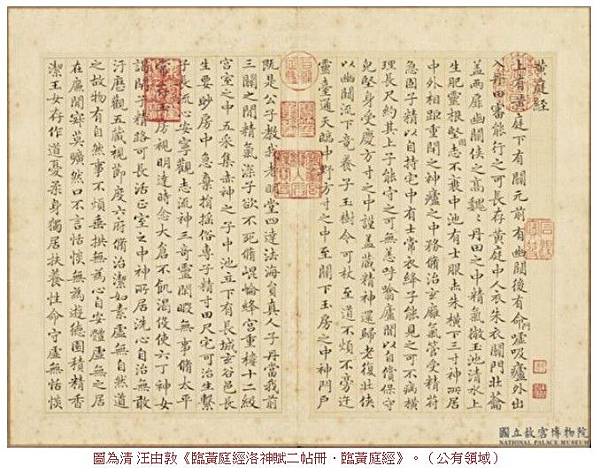 黃庭經
上有黃庭下有關元前有幽闕後有命門噓吸廬外出
入丹田審能行之可長存黃庭中人衣朱衣關門壯籥
蓋兩扉幽闕俠之高魏〻丹田之中精氣微玉池清水上
生肥靈根堅志不衰中池有士服赤朱橫下三寸神所居
中外相距重閉之神廬之中務脩治玄廱氣管受精符
急固子精以自持宅中有士常衣絳子能見之可不病橫
理長尺約其上子能守之可無恙呼噏廬間以自償保守
皃堅身受慶方寸之中謹蓋藏精神還歸老復壯俠
以幽闕流下竟養子玉樹令可杖至道不煩不旁迕
靈臺通天臨中野方寸之中至關下玉房之中神門戶
既是公子教我者明堂四達法海員真人子丹當我前
三關之間精氣深子欲不死脩崐崘絳宮重樓十二級
宮室之中五采集赤神之子中池立下有長城玄谷邑長
生要眇房中急棄捐搖俗專子精寸田尺宅可治生繫
子長流心安寧觀志流神三奇靈閒暇無事脩太平
常存玉房視明達時念大倉不飢渴役使六丁神女
謁閉子精路可長活正室之中神所居洗心自治無敢
汙歷觀五藏視節度六府脩治潔如素虛無自然道
之故物有自然事不煩垂拱無為心自安體虛無之居
在廉閒寂莫曠然口不言恬惔無為遊德園積精香
潔玉女存作道憂柔身獨居扶養性命守虛無恬惔
國立故宮博物院
NATIONAL PALACE MUSEUM
圖為清 汪由敦《臨黃庭經洛神賦二帖冊·臨黃庭經》。（公有領域）